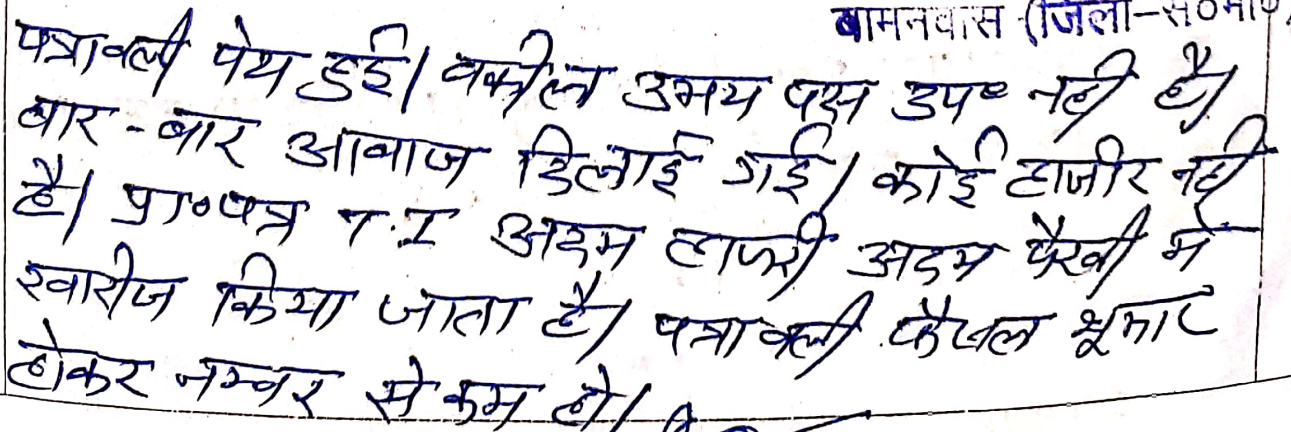 बामनवास (जिला-स०मा०
पत्रावली पेश हुई। वकील उभय पक्ष उप० नही है।
बार-बार आवाज दिलाई गई। कोई हाजीर नही
है। प्रा०पत्र T.I अदम हाजरी अदम पैरवी में
खारीज किया जाता है। पत्रावली फैसल शूमार
होकर नम्बर से कम हो।